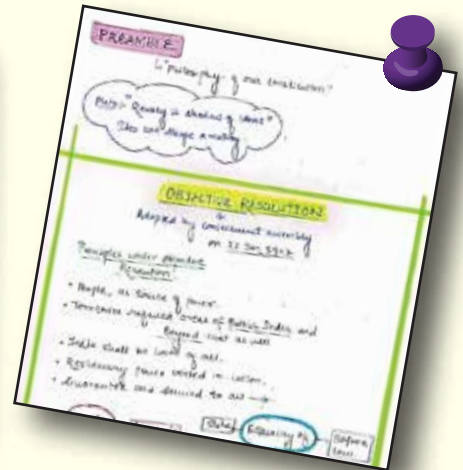 PREAMBLE
↳ "philosophy of our constitution"
Plato:- "Reality is shadow of ideas"
Idea can shape a reality
OBJECTIVE RESOLUTION
Adopted by constituent assembly
on 22 Jan, 1947
Principles under objective
Resolution:
• People, as source of power.
• Territories areas of British India and
Beyond that as well
• India shall be of all.
• Residuary power vested in
• Guarantee and secured to all →
Equality of
before
law